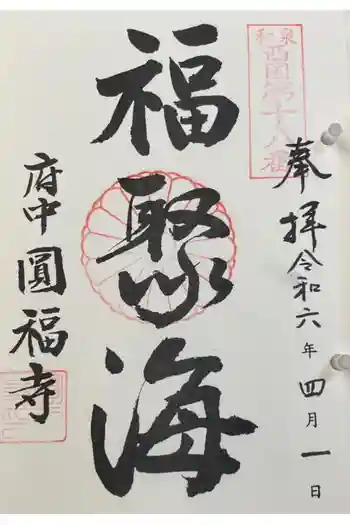 奉拝 令和六年四月一日
和泉
西国第十八番
福聚海
府中 圓福寺